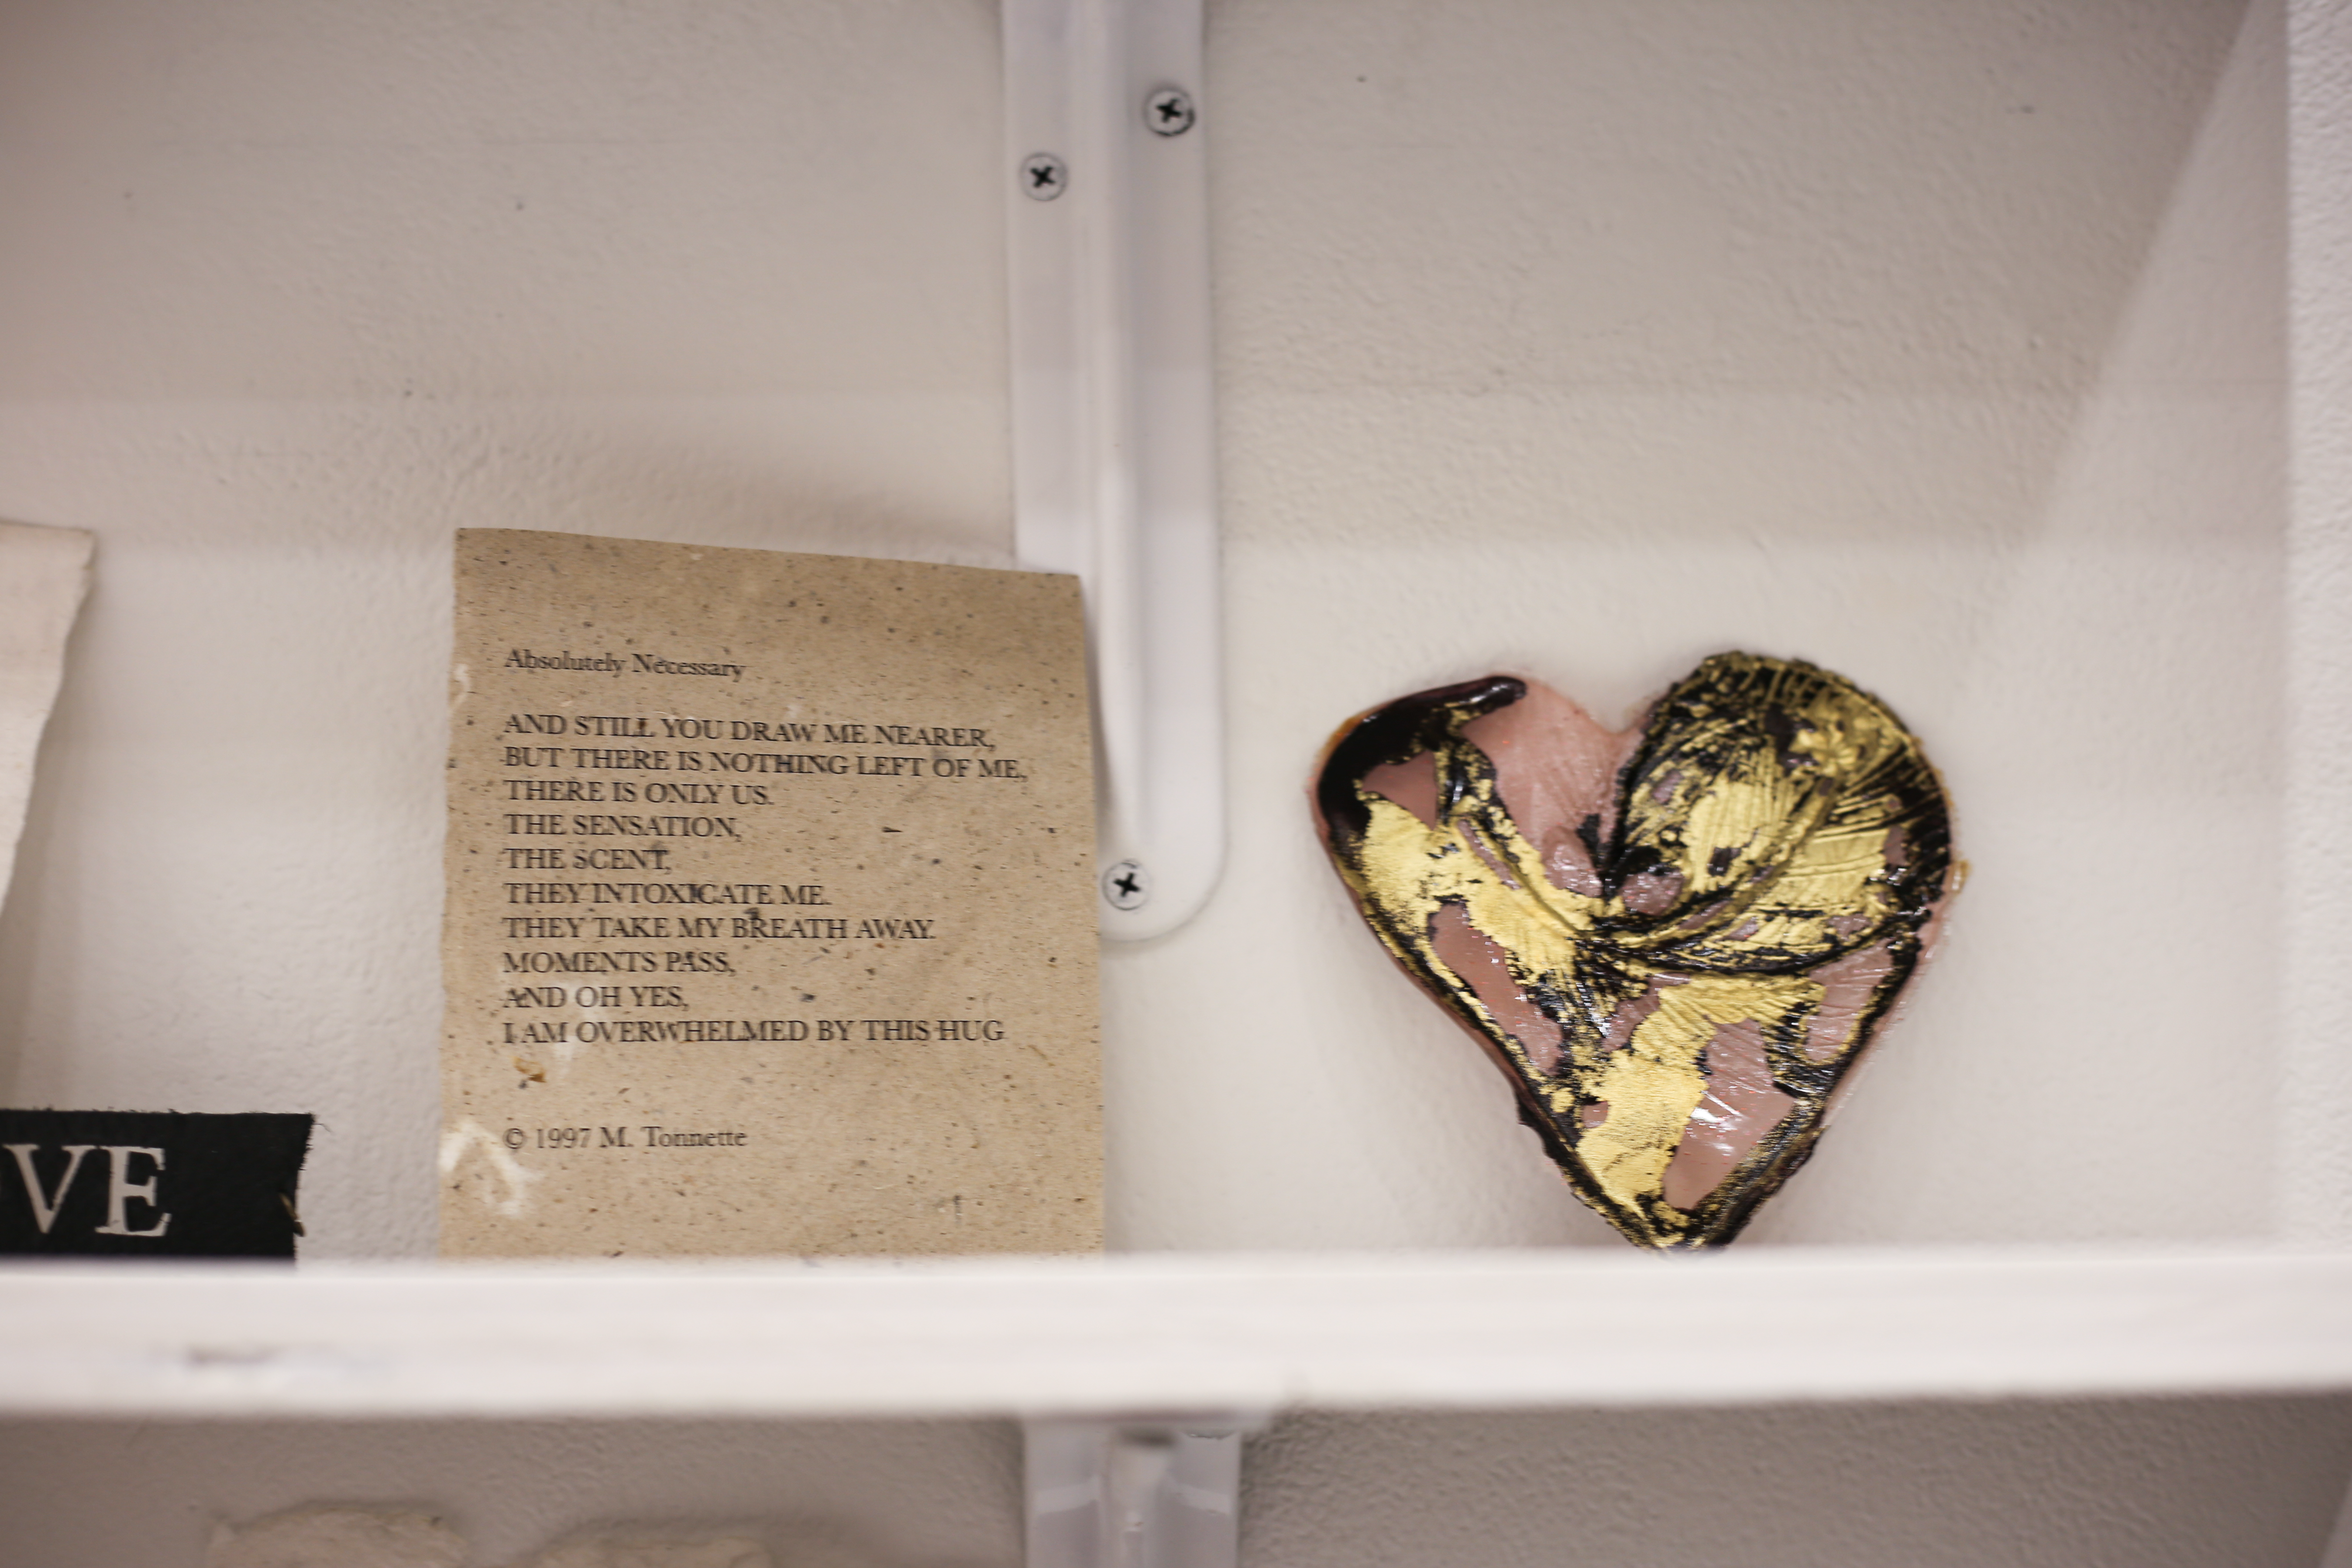 Absolutely Necessary
AND STILL YOU DRAW ME NEARER,
BUT THERE IS NOTHING LEFT OF ME,
THERE IS ONLY US.
THE SENSATION,
THE SCENT,
THEY INTOXICATE ME.
THEY TAKE MY BREATH AWAY.
MOMENTS PASS,
AND OH YES,
I AM OVERWHELMED BY THIS HUG
© 1997 M. Tonnette
VE